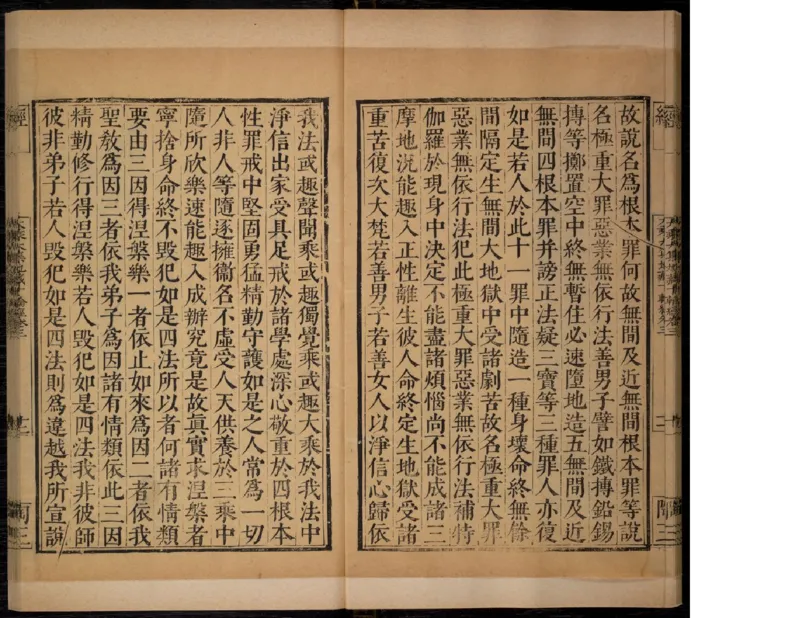 故說名爲根本罪何故無間及近無間根本罪等說
名極重大罪惡業無依行法善男子譬如鐵摶鉛錫
摶等擲置空中終無暫住必速墮地造五無間及近
無間四根本罪并謗正法疑三寶等三種罪人亦復
如是若人於此十一罪中隨造一種身壞命終無餘
間隔定生無間大地獄中受諸劇苦故名極重大罪
惡業無依行法犯此極重大罪惡業無依行法補特
伽羅於現身中決定不能盡諸煩惱尚不能成諸三
摩地況能趣入正性離生彼人命終定生地獄受諸
重苦復次大梵若善男子若善女人以淨信心歸依
我法或趣聲聞乘或趣獨覺乘或趣大乘於我法中
淨信出家受具足戒於諸學處深心敬重於四根本
性罪戒中堅固勇猛精勤守護如是之人常爲一切
人非人等隨逐擁衞名不虛受人天供養於三乘中
隨所欣樂速能趣入成辦究竟是故眞實求涅槃者
寧捨身命終不毀犯如是四法所以者何諸有情類
要由三因得涅槃樂一者依止如來爲因二者依我
聖教爲因三者依我弟子爲因諸有情類依此三因
精勤修行得涅槃樂若人毀犯如是四法我非彼師
彼非弟子若人毀犯如是四法則爲違越我所宣說